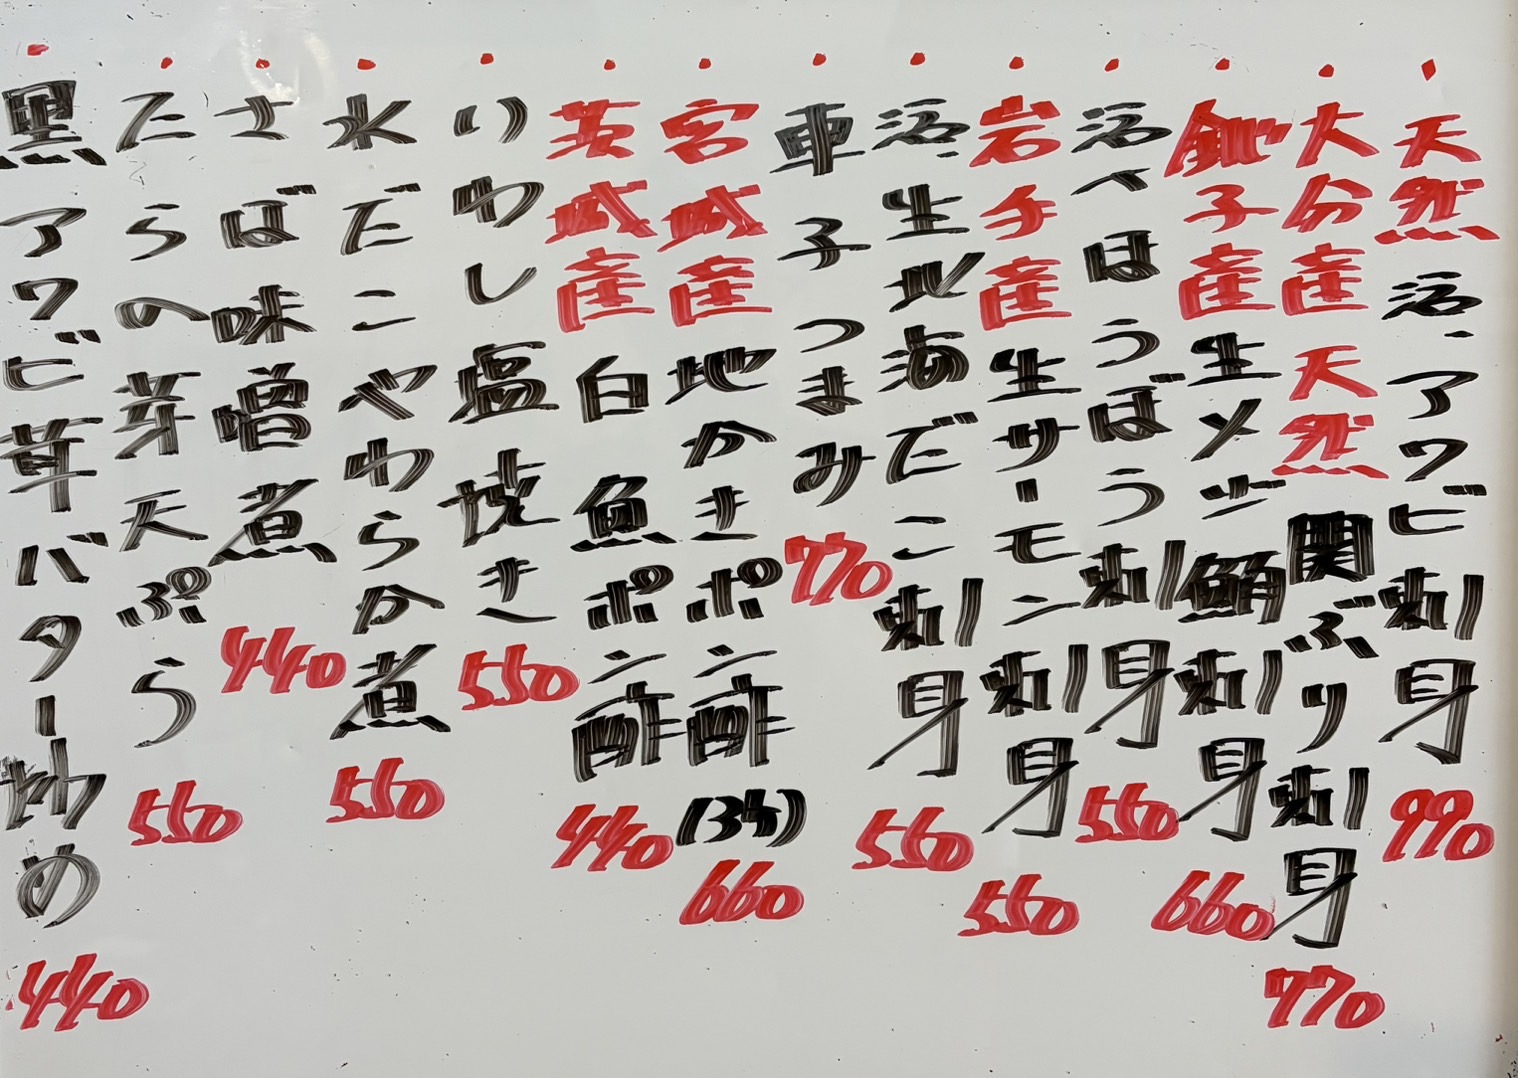 ・天然活アワビ刺身 990
・大分産天然関ぶり刺身 770
・銚子産生メジ鮪刺身 660
・活〆ほうぼう刺身 550
・岩手産生サーモン刺身 550
・活生北海だこ刺身 550
・車子つまみ 770
・宮城産地かきポン酢(3ヶ) 660
・茨城産白魚ポン酢 440
・いわし塩焼き 550
・水だこやわらか煮 550
・さば味噌煮 440
・たらの芽天ぷら 550
・黒アワビ茸バター炒め 440